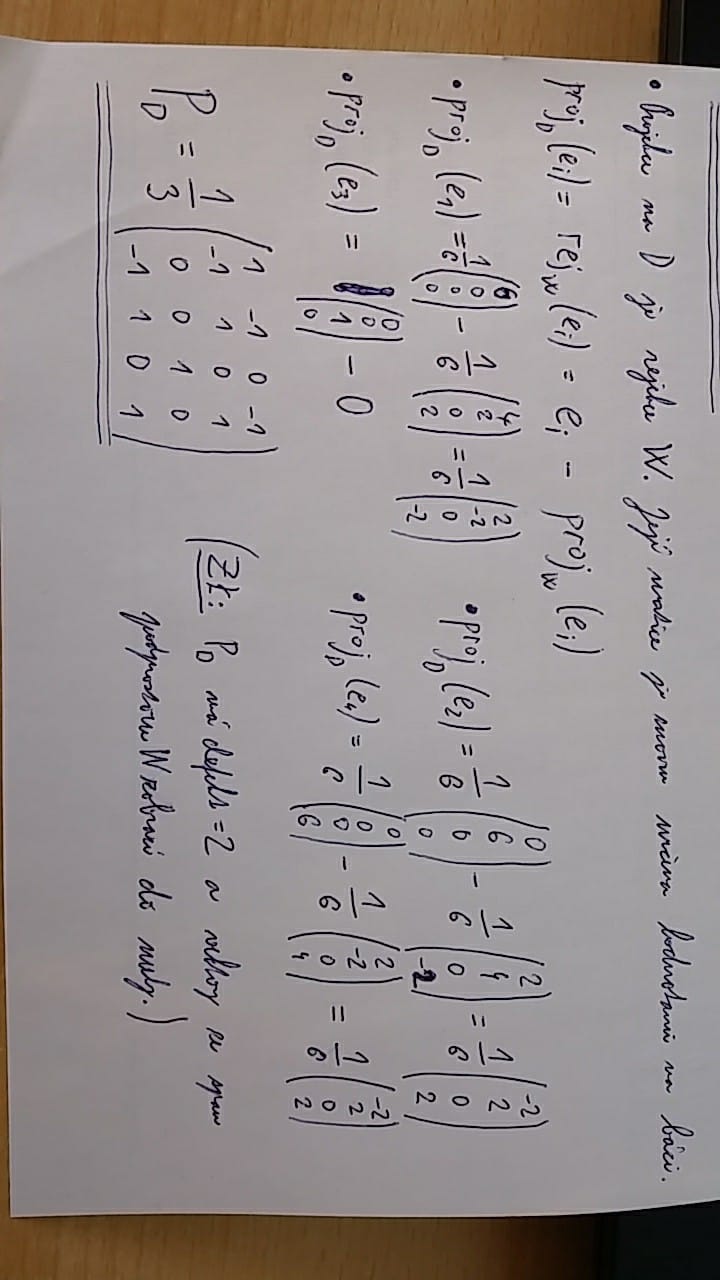 • Projekce na D je rejekce W. Její matice je znovu určena hodnotami na bázi.
proj_D (e_i) = rej_W (e_i) = e_i − proj_W (e_i)
• proj_D (e_1) = 1/6 (6 0 0 0) − 1/6 (4 2 0 2) = 1/6 (2 -2 0 -2)
• proj_D (e_2) = 1/6 (0 6 0 0) − 1/6 (2 4 0 -2) = 1/6 (-2 2 0 2)
• proj_D (e_3) = (0 0 1 0) − 0
• proj_D (e_4) = 1/6 (0 0 0 6) − 1/6 (2 -2 0 4) = 1/6 (-2 2 0 2)
P_D = 1/3 (
1 -1 0 -1
-1 1 0 1
0 0 1 0
-1 1 0 1
)
(Zk: P_D má defekt = 2 a vektory ze span
podprostoru W zobrazí do nuly.)